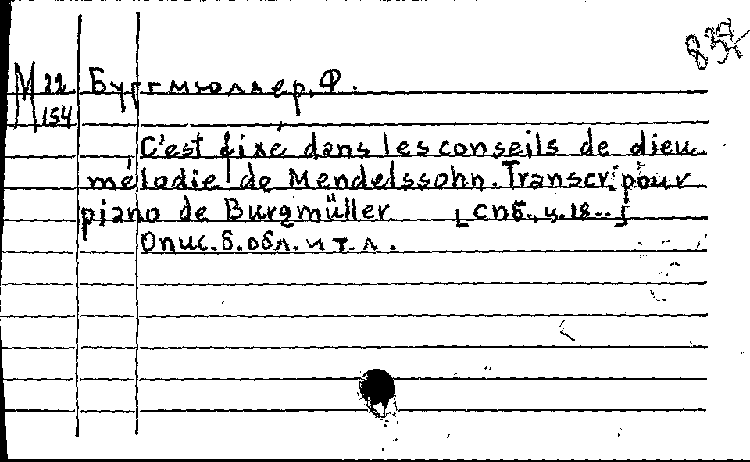 М 22 Бургмюллер, Ф.
154
C'est fixé dans les conseils de dieu
mélodie de Mendelssohn. Transcr. pour
piano de Burgmüller [СПб., ц. 18..]
Опис. б. обл. и т. л.